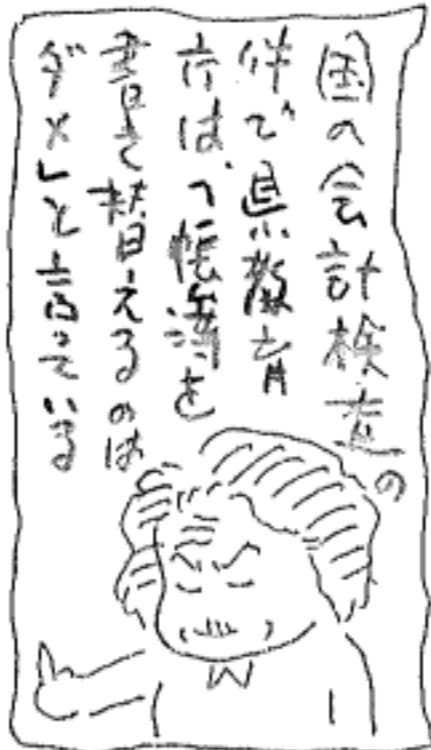 国の会計検査の
件で県教育
庁は、「帳簿を
書き替えるのは
ダメ」と言っている